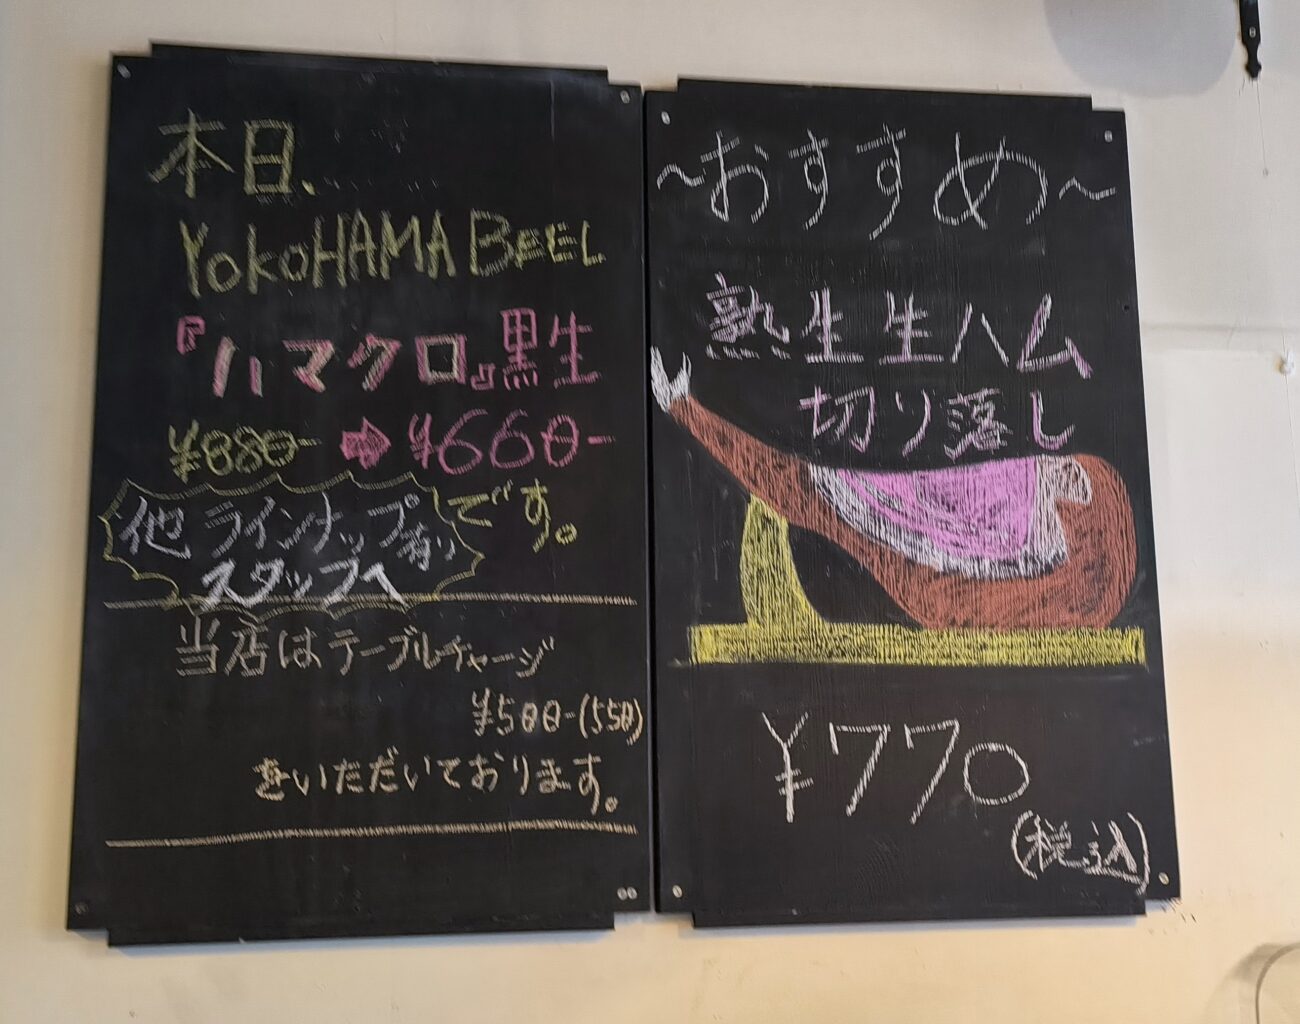 本日、
YOKOHAMA BEEL
『ハマクロ』黒生
¥880- ➡ ¥660-
です。
他 ラインナップ有り
スタッフへ
当店はテーブルチャージ
¥500-(550)
をいただいております。
~おすすめ~
熟生生ハム
切り落し
¥770
(税込)